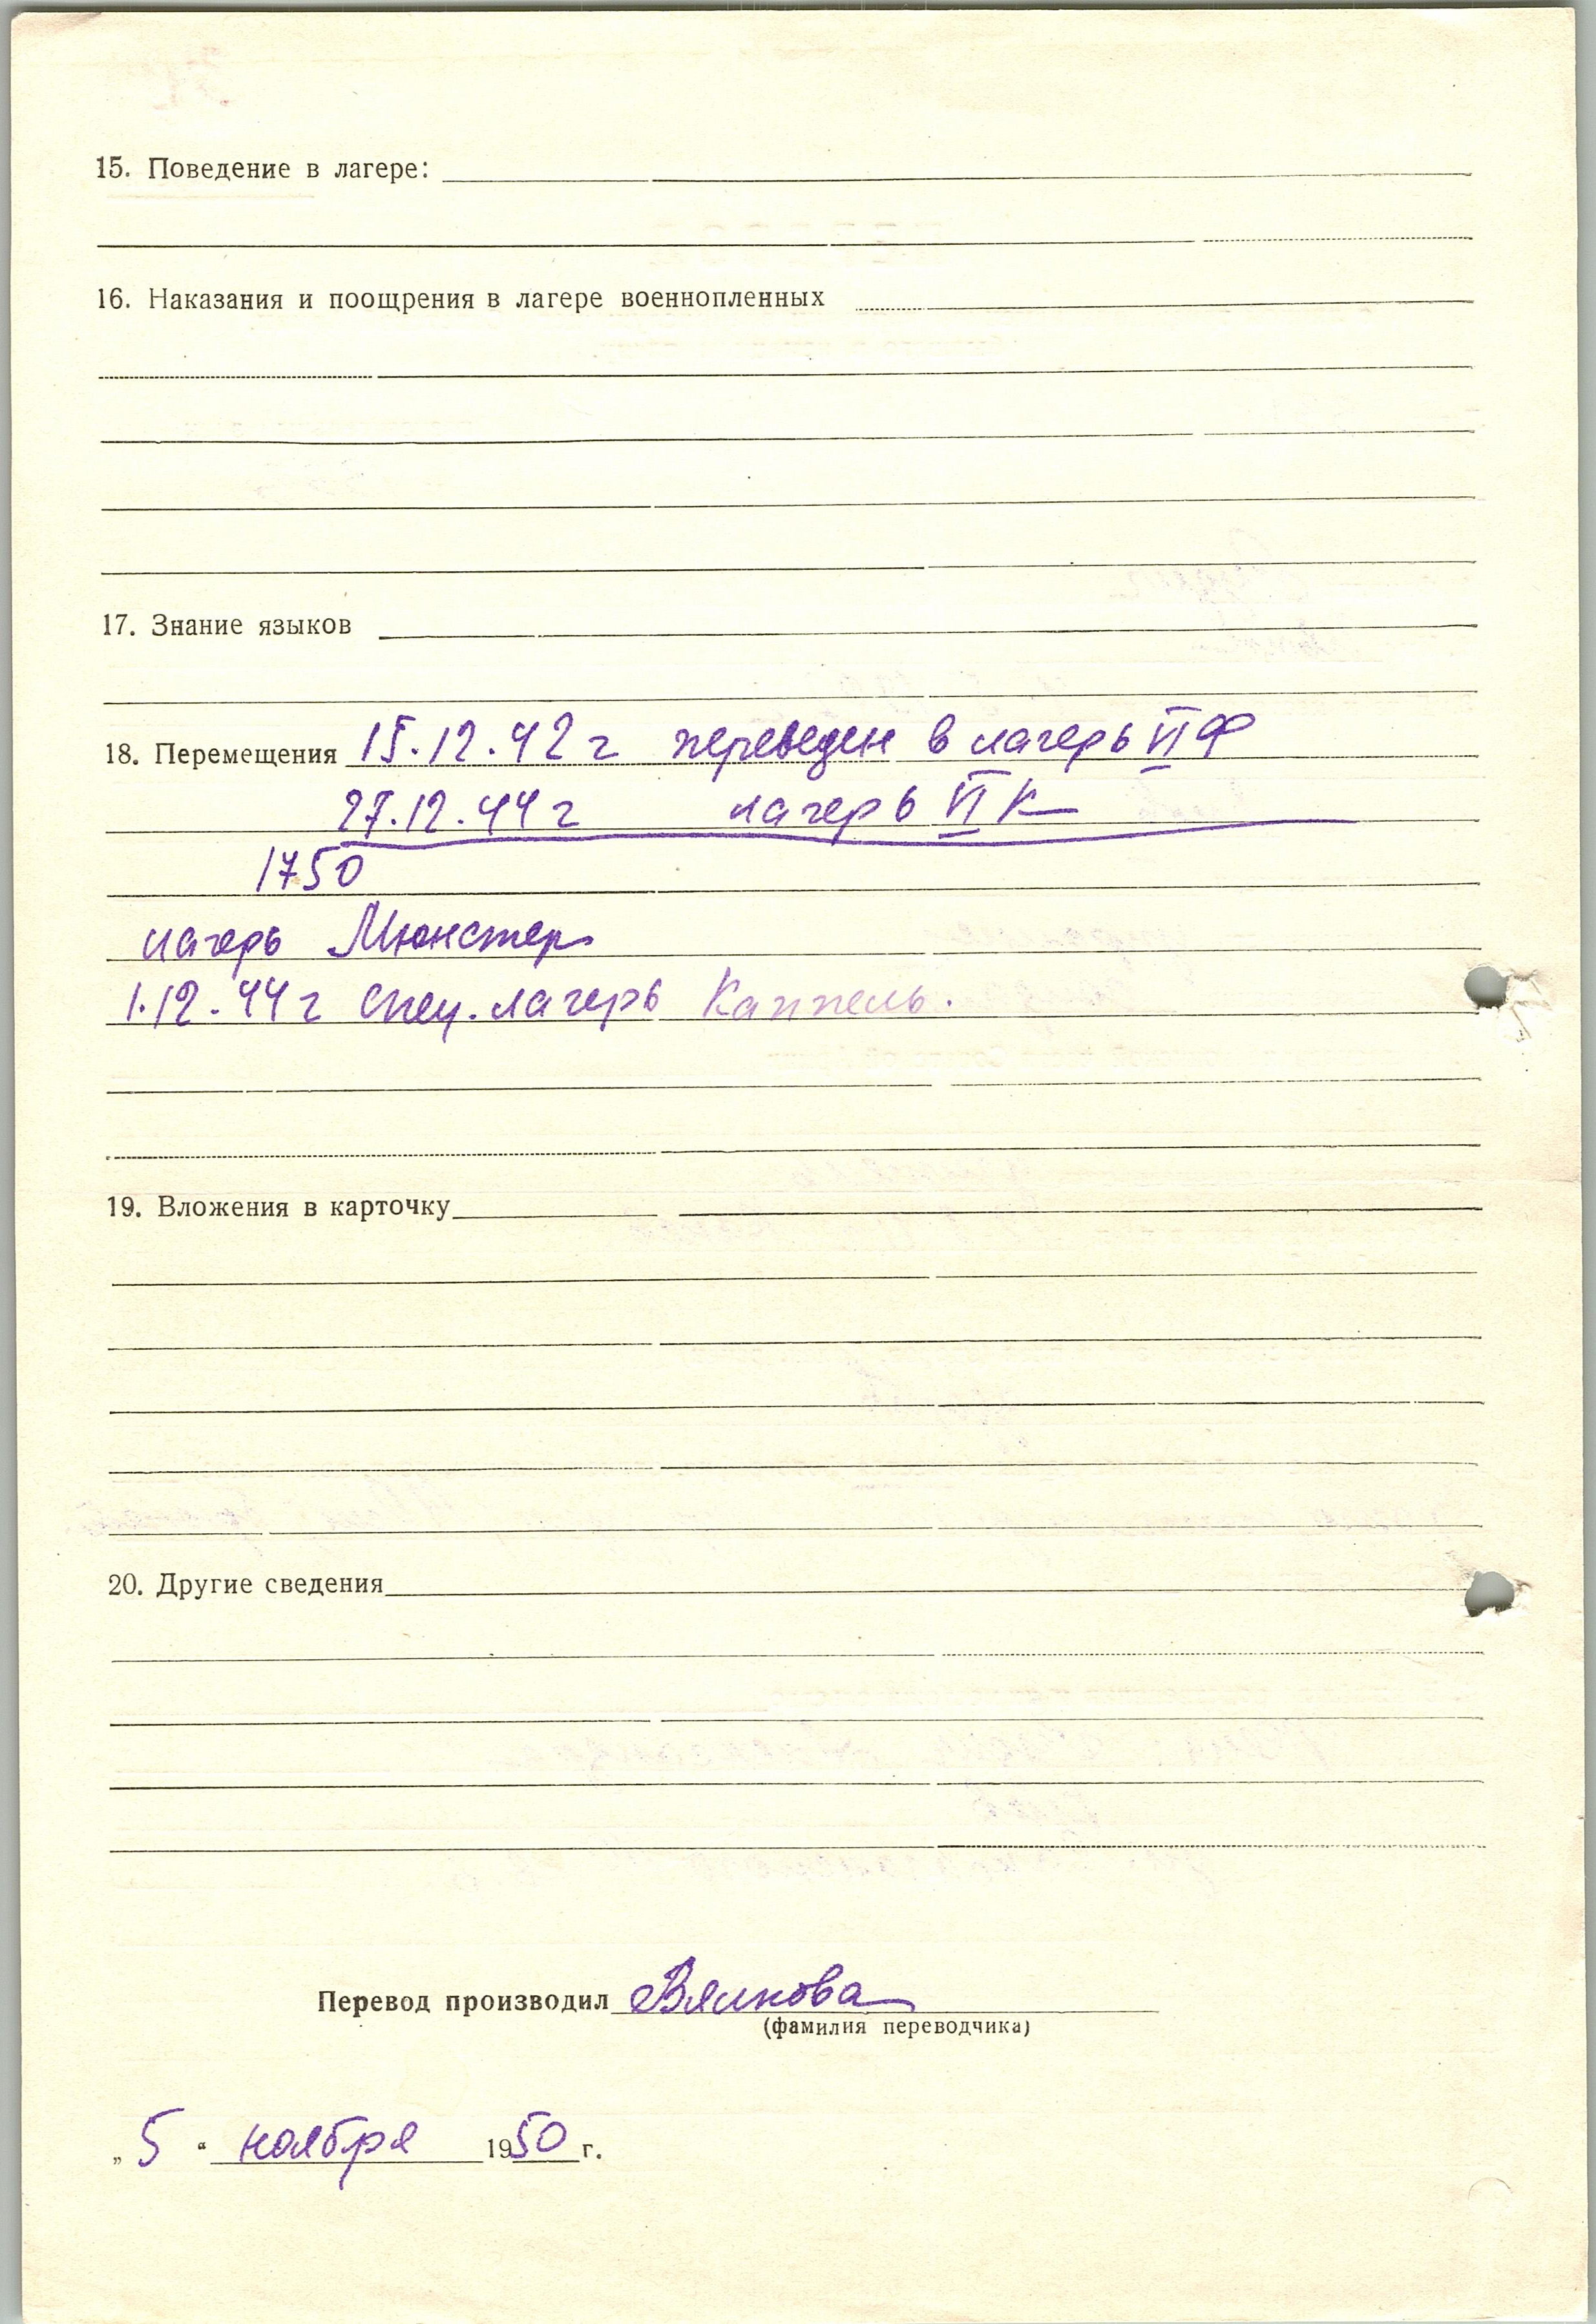 15. Поведение в лагере:
16. Наказания и поощрения в лагере военнопленных
17. Знание языков
18. Перемещения 15.12.42 г переведен в лагерь VI Ф
27.12.44 г лагерь VI К
1750
лагерь Мюнстер
1.12.44 г спец. лагерь Каппель.
19. Вложения в карточку
20. Другие сведения
Перевод производил Вялкова
(фамилия переводчика)
„ 5 “ ноября 1950 г.